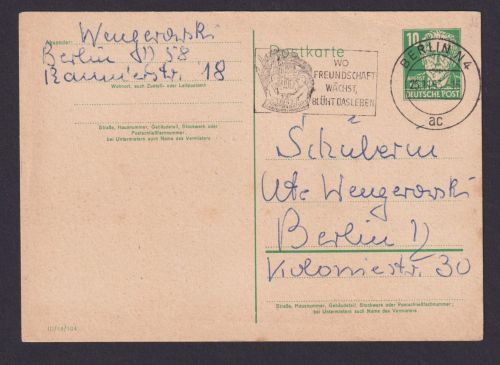 Absender: Wengerowski
Berlin N 58
18
Wohnort, auch Zustell- oder Leitpostamt
Straße, Hausnummer, Gebäudeteil, Stockwerk oder
Postschließfachnummer;
bei Untermietern auch Name des Vermieters
III/18/104
Postkarte
WO
FREUNDSCHAFT
WÄCHST,
BLÜHT DAS LEBEN
BERLIN N4
ac
10
DEUTSCHE POST
Schülerin
Ute Wengerowski
Berlin N
Koloniestr. 30
Straße, Hausnummer, Gebäudeteil, Stockwerk oder Postschließfachnummer;
bei Untermietern auch Name des Vermieters